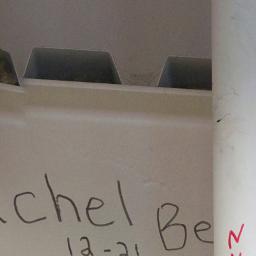 chel Be
12-21
N